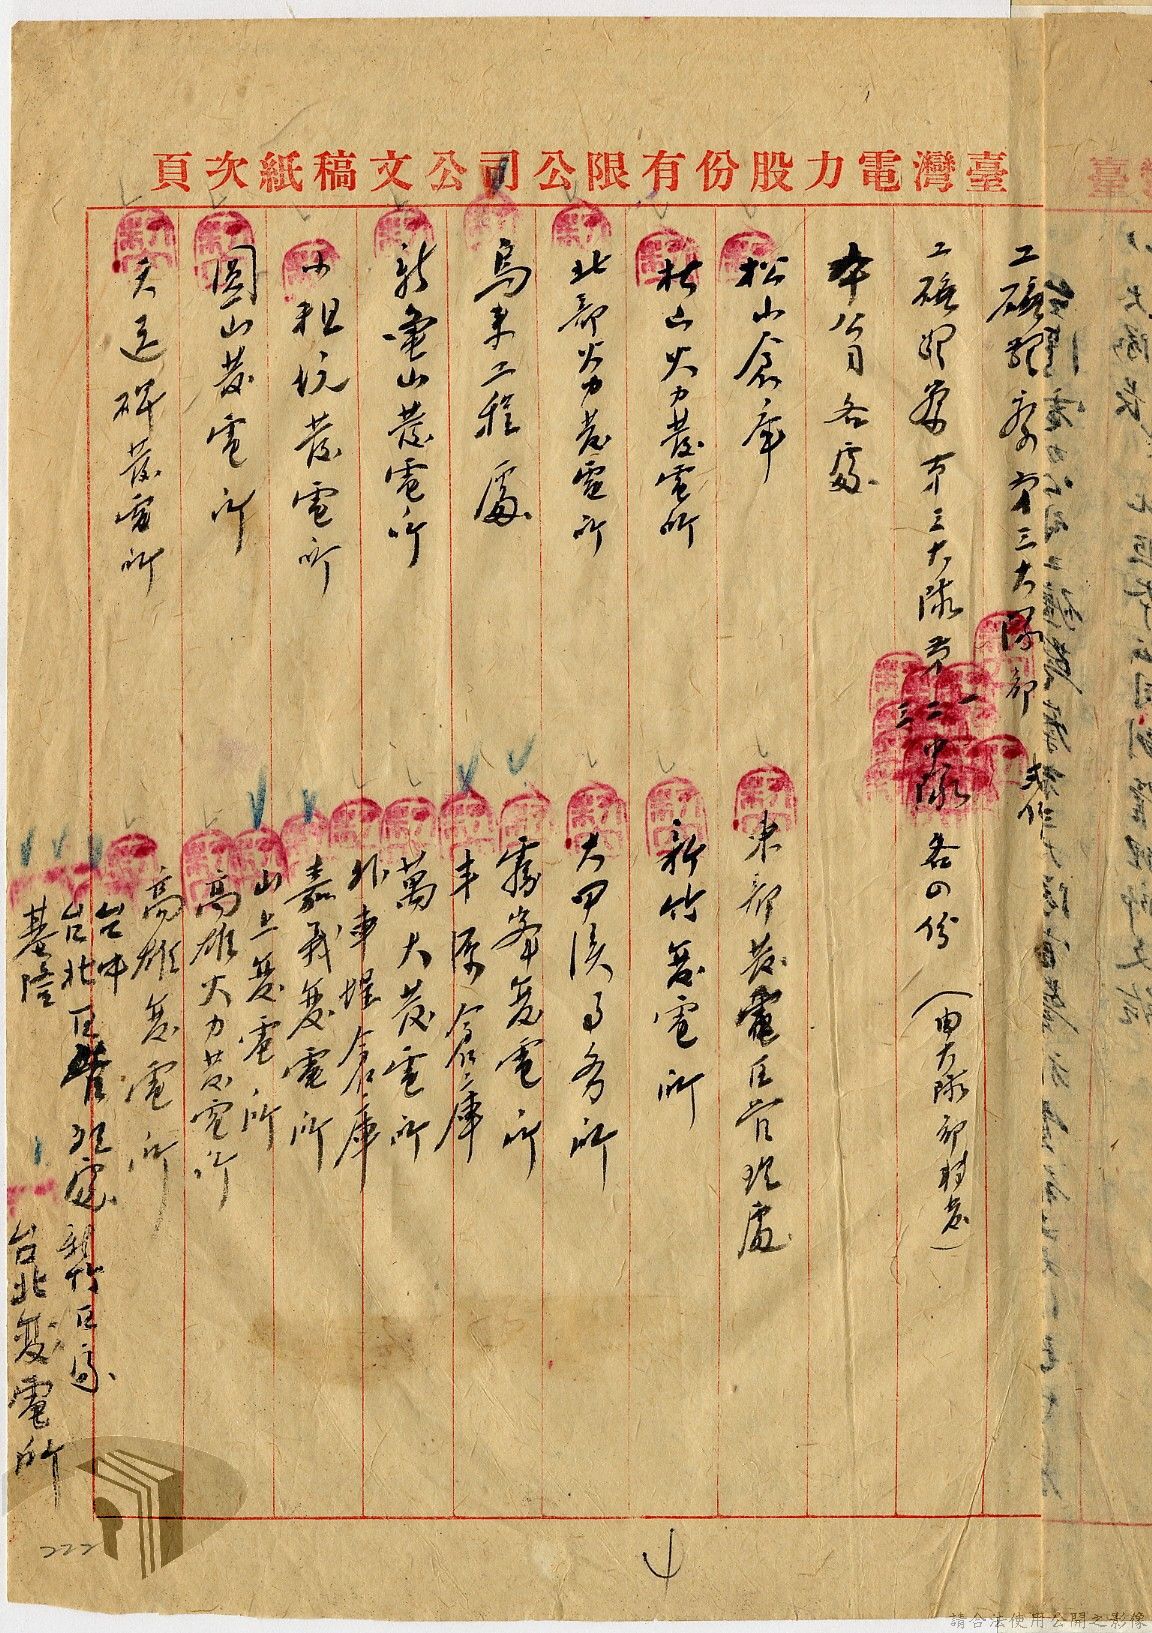 臺灣電力股份有限公司公文稿紙次頁
工礦警察第三大隊部 弍份
工礦警察第三大隊第一二三中隊各四份（由大隊部轉發）
本公司各處
松山倉庫
東部發電區管理處
松山火力發電所
新竹變電所
北部火力發電所
大甲溪事務所
烏來工程處
霧峯變電所
豐原倉庫
新龜山發電所
萬大發電所
外車埕倉庫
小粗坑發電所
嘉義變電所
山上變電所
圓山發電所
高雄火力發電所
天送埤發電所
高雄變電所
台中
台北區管理處
基隆
新竹區處
台北變電所
222
請合法使用公開之影像